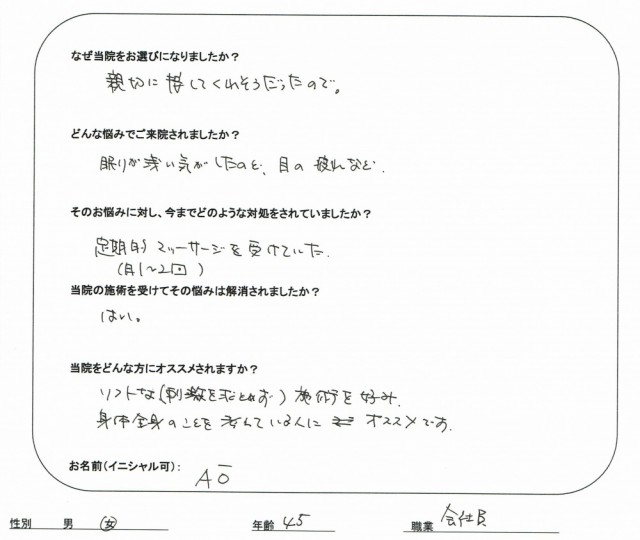 なぜ当院をお選びになりましたか？
親切に接してくれそうだったので。
どんな悩みでご来院されましたか？
眠りが浅い気がしたのと、目の疲れなど.
そのお悩みに対し、今までどのような対処をされていましたか？
定期的マッサージを受けていた.
(月1～2回)
当院の施術を受けてその悩みは解消されましたか？
はい。
当院をどんな方にオススメされますか？
ソフトな(刺激を求めず)施術を好み.
身体全身のことを考えている人に オススメです.
お名前(イニシャル可):
AO
性別 男 女 年齢 45 職業 会社員